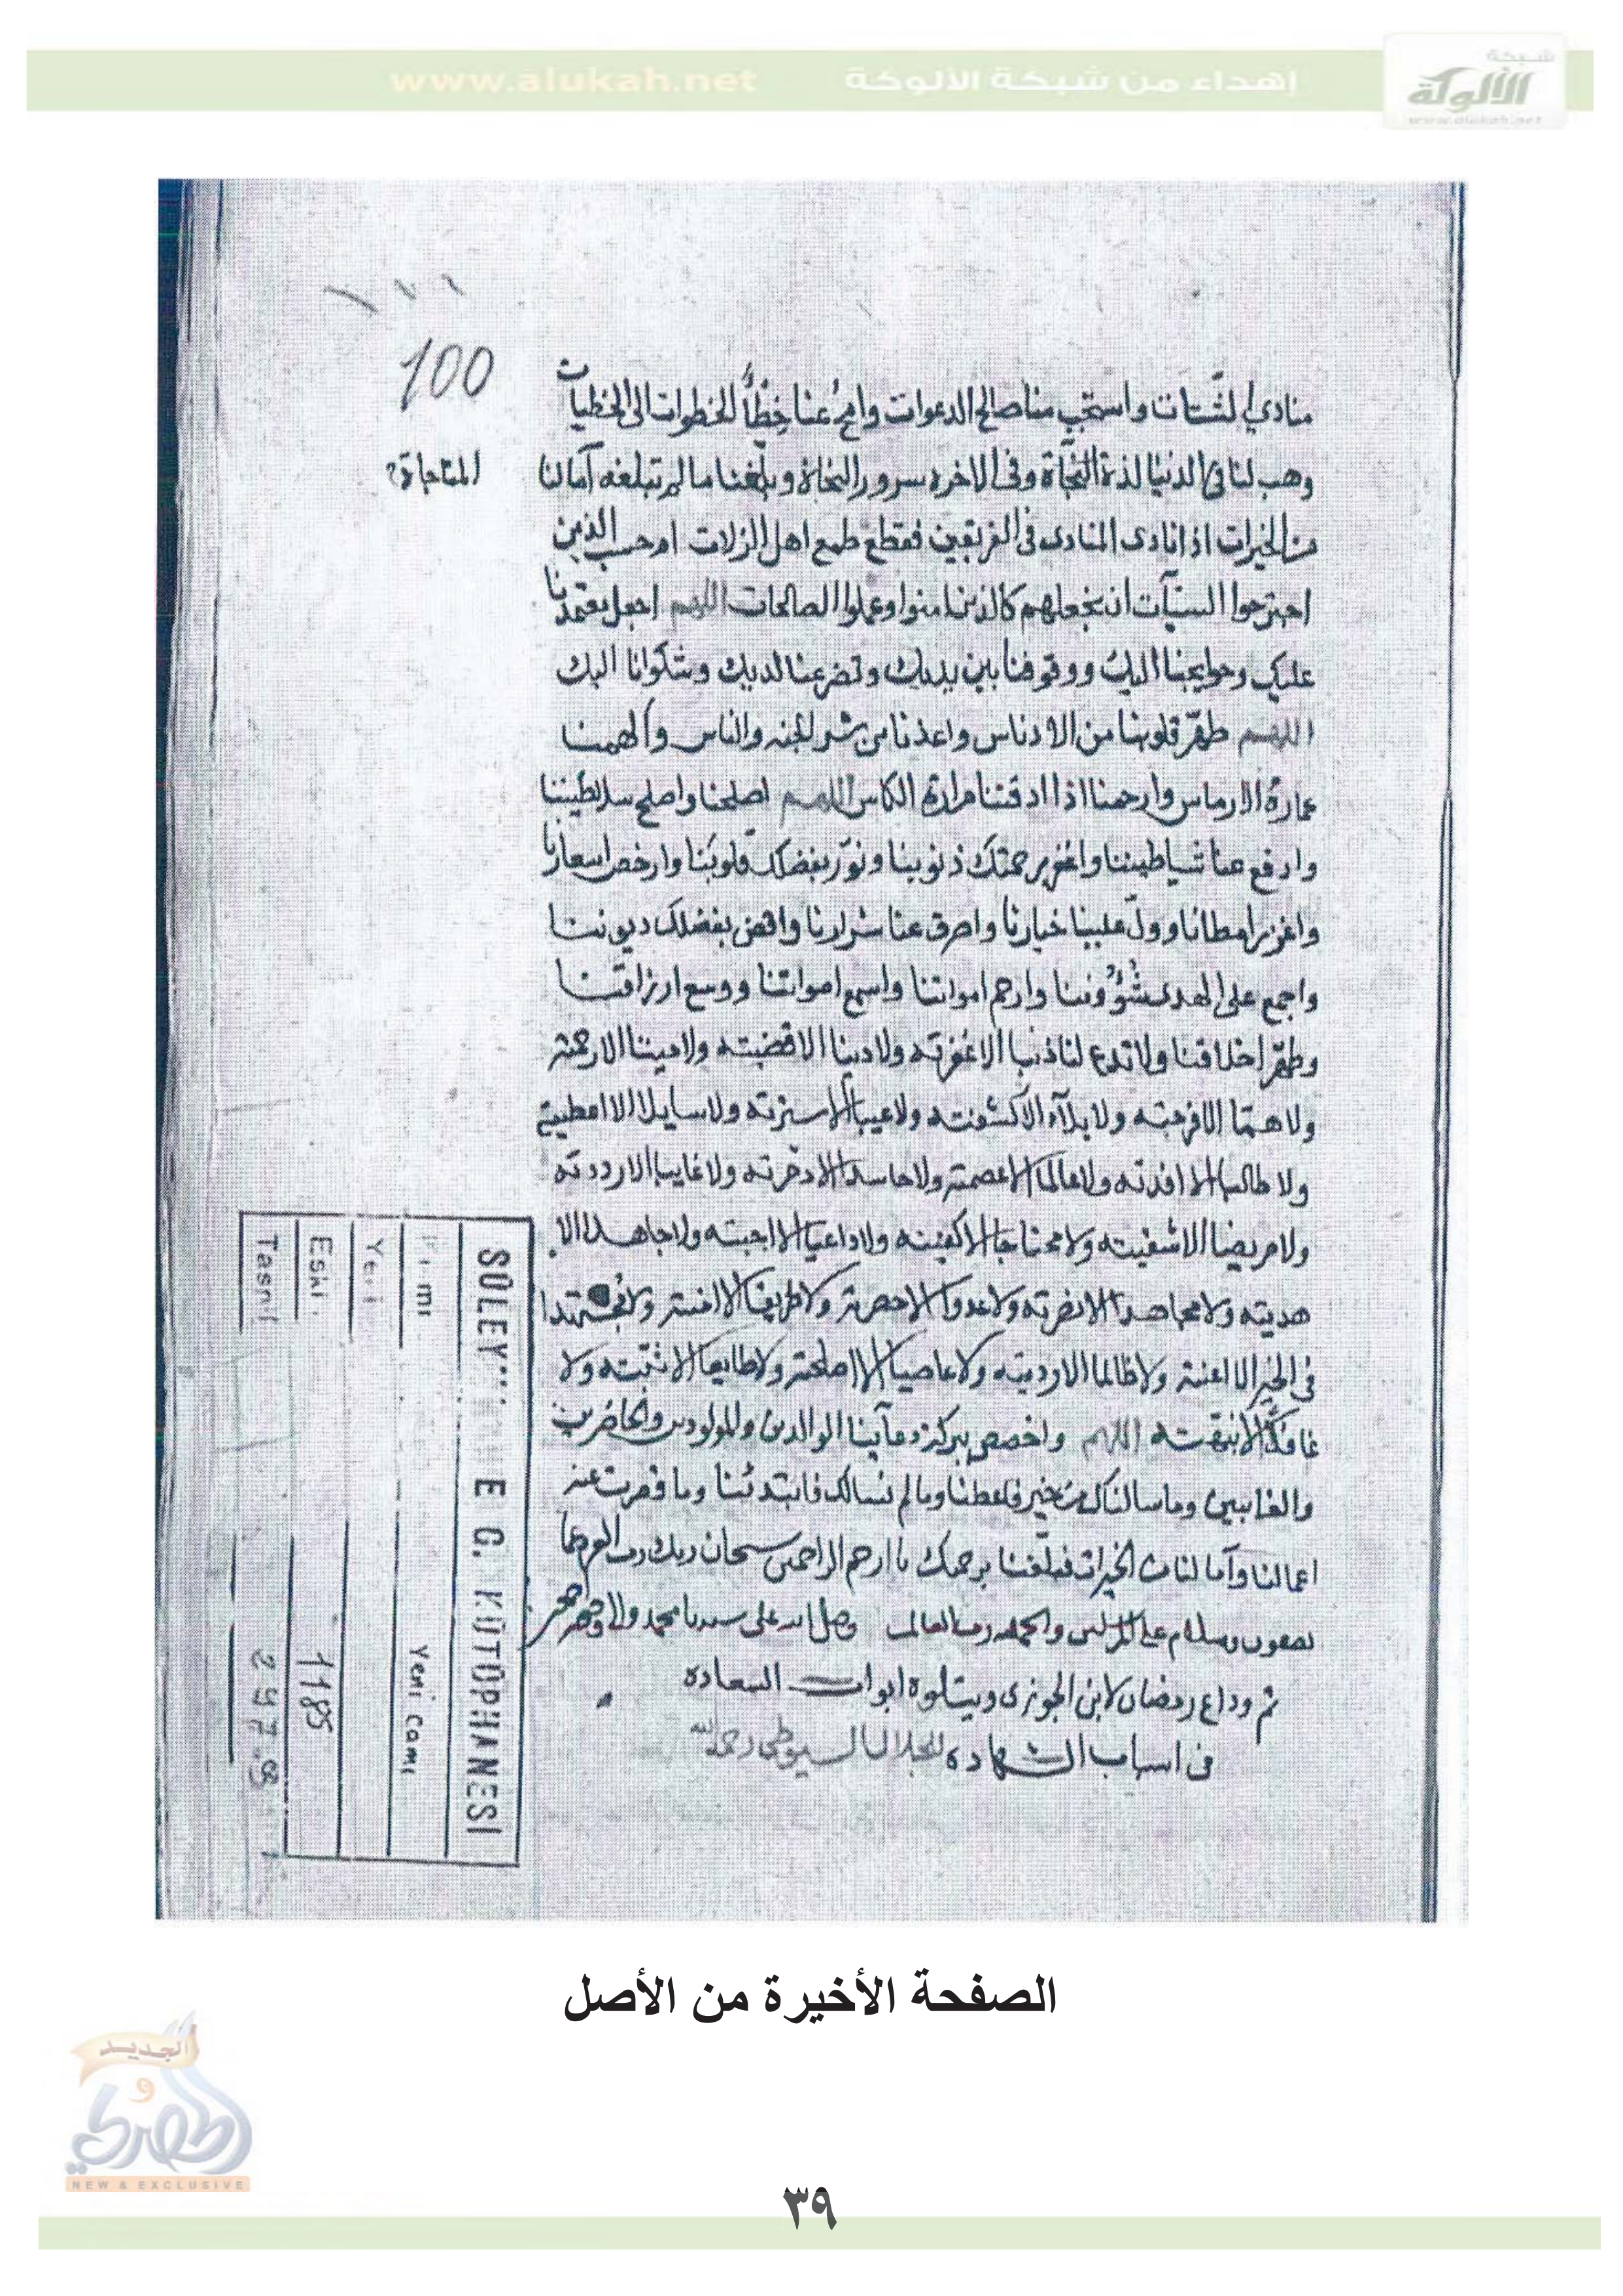 شبكة
الألوكة
www.alukah.net
إهداء من شبكة الألوكة
www.alukah.net
100
منادي الشتات واستجب منا صالح الدعوات وامح عنا خطأ الخطوات الى الخطيات
وهب لنا في الدنيا لذة المناجاة وفي الاخره سرور النجاة وبلغنا ما لم تبلغه آمالنا
المناجاة
من الخيرات اذا نادى المنادى فى الفريقين فقطع طمع اهل الزلات ام حسب الذين
اجترحوا السيآت ان نجعلهم كالذين امنوا وعملوا الصالحات اللهم اجعل معتمدنا
عليك وحوايجنا اليك ووقوفنا بين يديك وتضرعنا لديك وشكوانا اليك
اللهم طهّر قلوبنا من الادناس واعذنا من شر الجنه والناس وألهمنا
عمارة الارماس وارحمنا اذا ادقتنا مرارة الكاس اللهم اصلحنا واصلح سلاطيننا
وادفع عنا شياطيننا واغفر برحمتك ذنوبنا ونوّر بفضلك قلوبنا وارخص اسعارنا
واغزر امطارنا وولّ علينا خيارنا واصرف عنا شرارنا واقض بفضلك ديوننا
واجمع على الهدى شؤوننا وارحم امواتنا واسمع اصواتنا ووسع ارزاقنا
وطهّر اخلاقنا ولا تدع لنا ذنبا الا غفرته ولا دينا الا قضيته ولا ميتا الا رحمته
ولا همّا الا فرجته ولا بلآء الا كشفته ولا عيبا الا سترته ولا سايلا الا اعطيته
ولا طالبا الا افدته ولا عالما الا عصمته ولا حاسدا الا دحرته ولا غايبا الا رددته
ولا مريضا الا شفيته ولا محتاجا الا كفيته ولا داعيا الا اجبته ولا جاهلا الا
هديته ولا مجاهدا الا نصرته ولا عدوا الا ولا طريقا الا امنته ولا مجتهدا
فى الخير الا اعنته ولا ظالما الا ارديته ولا عاصيا الا اصلحته ولا طايعا الا ثبّته ولا
غافلا الا نبهته اللهم واخصص ببركة دعآينا الوالدين والمولودين والحاضرين
والغايبين وما سالناك من خير فاعطنا وما لم نسالك فابتدئنا وما قصرت عنه
اعمالنا وآمالنا من الخيرات فبلّغنا برحمتك يا ارحم الراحمين سبحان ربك رب العزه عما
يصفون وسلام على المرسلين والحمد لله رب العالمين وصل الله على سيدنا محمد واله وصحبه
تم وداع رمضان لابن الجوزى ويتلوه ابواب السعاده
فى اسباب الشهاده للجلال السيوطى رحمه الله
E G. KÜTÜPHANESI
Yeni Cami
Eski
1185
Tasnif
الصفحة الأخيرة من الأصل
الجديد
و
الحصري
NEW & EXCLUSIVE
٣٩